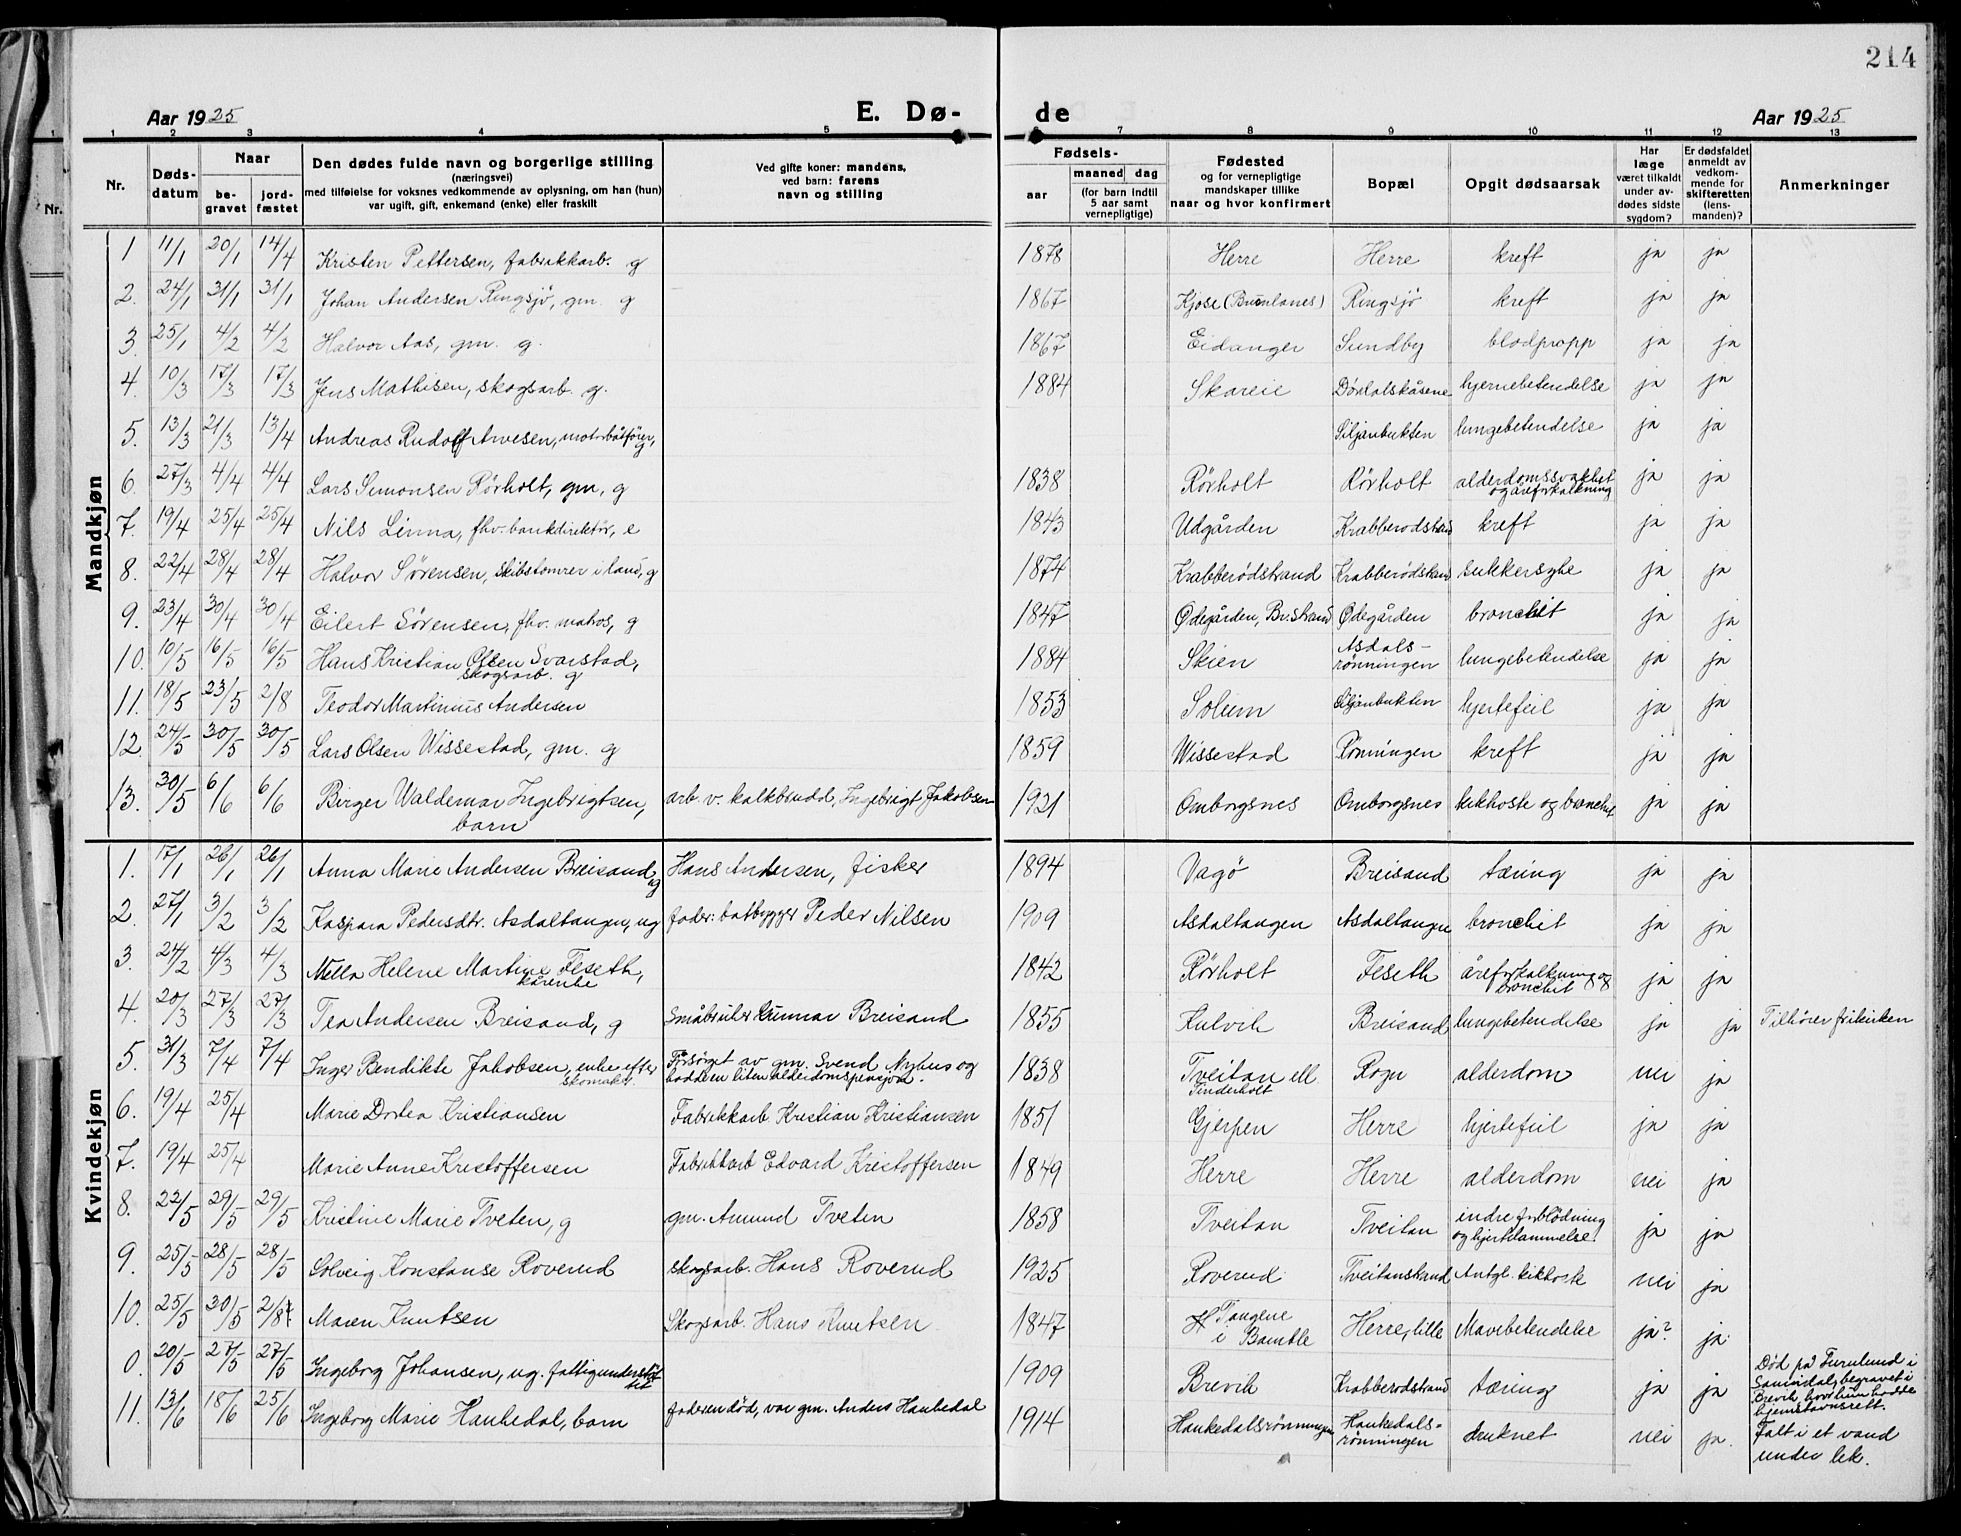 214
Aar 1925 E. Dø- de Aar 1925
1 2 3 4 5 7 8 9 10 11 12 13
Nr. Døds-datum Naar be-gravet jord-fæstet Den dødes fulde navn og borgerlige stilling (næringsvei) med tilføielse for voksnes vedkommende av oplysning, om han (hun) var ugift, gift, enkemand (enke) eller fraskilt Ved gifte koner: mandens, ved barn: farens navn og stilling Fødsels- aar maaned dag (for barn indtil 5 aar samt vernepligtige) Fødested og for vernepligtige mandskaper tillike naar og hvor konfirmert Bopæl Opgit dødsaarsak Har læge været tilkaldt under av-dødes sidste sygdom? Er dødsfaldet anmeldt av vedkom-mende for skifteretten (lens-manden)? Anmerkninger
Mandkjøn
1 11/1 20/1 14/4 Kristen Pettersen, fabrikkarb. g 1878 Herre Herre kreft ja ja
2. 24/1 31/1 31/1 Johan Andersen Ringsjö, gm. g 1867 Kjose (Brunlanes) Ringsjö kreft ja ja
3. 25/1 4/2 4/2 Halvor Aas, gm. g. 1867 Eidanger Sundby blodpropp ja ja
4. 10/3 17/3 17/3 Jens Mathisen, skogsarb. g. 1884 Skareie Dördalsåsene hjernebetendelse ja ja
5. 13/3 21/3 13/4 Andreas Rudolf Arvesen, motorbåtförer, g. Siljanbukten lungebetendelse ja ja
6. 27/3 4/4 4/4 Lars Simonsen Rörholt, gm, g 1838 Rörholt Rörholt alderdomssvakhet og åreforkalkning ja ja
7. 19/4 25/4 25/4 Nils Linna, fhv. bankdirektör, e 1843 Udgården Krabberodstrand kreft ja ja
8. 22/4 28/4 28/4 Halvor Sörensen, skibstömrer i land, g 1874 Krabberödstrand Krabberödstrand sukkersyke ja ja
9. 23/4 30/4 30/4 Eilert Sörensen, fhv. matros, g 1847 Ödegården, Br.strand Ödegården bronchit ja ja
10. 10/5 16/5 16/5 Hans Kristian Olsen Svarstad, skogsarb. g 1884 Skien Asdals-rönningen lungebetendelse ja ja
11. 18/5 23/5 2/8 Teodor Martinius Andersen 1853 Solum Siljanbukten hjertefeil ja ja
12. 24/5 30/5 30/5 Lars Olsen Wissestad, gm. g 1859 Wissestad Rönningen kreft ja ja
13. 30/5 6/6 6/6 Birger Waldemar Ingebrigtsen, barn arb. v. kalkbrudd, Ingebrigt Jakobsen 1921 Omborgsnes Omborgsnes kikhoste og bronchit ja ja
Kvindekjøn
1. 17/1 26/1 26/1 Anna Marie Andersen Breisand, g Hans Andersen, fisker 1894 Vagö Breisand tæring ja ja
2. 27/1 3/2 3/2 Kaspara Pedersdtr. Asdaltangen, ug fader: båtbygger Peder Nilsen 1909 Asdaltangen Asdaltangen bronchit ja ja
3. 24/2 4/3 4/3 Nella Helene Martine Feseth, kårenke 1842 Rörholt Feseth åreforkalkning og bronchit ja ja
4. 20/3 27/3 27/3 Tea Andersen Breisand, g Småbruker Gunnar Breisand 1855 Kulvik Breisand lungebetendelse ja ja Tilhörer frikirken
5. 31/3 7/4 7/4 Inger Bendikte Jakobsen, enke efter skomaker Forsörget av gm. Svend Nyhus og hadde en liten alderdomspensjon. 1838 Tveitan ell Tinderholt Rogn alderdom nei ja
6. 19/4 25/4 Marie Dortea Kristiansen Fabrikkarb Kristian Kristiansen 1851 Gjerpen Herre hjertefeil ja ja
7. 19/4 25/4 Marie Anne Kristoffersen Fabrikkarb Edvard Kristoffersen 1849 Herre Herre alderdom nei ja
8. 22/5 29/5 29/5 Kristine Marie Tveten, g gm. Amund Tveten 1858 Tveitan Tveitan indre forblödning og hjertelammelse. ja ja
9. 25/5 28/5 28/5 Solveig Konstanse Roverud skogsarb. Hans Roverud 1925 Roverud Tveitanstrand Antgl. kikhoste nei ja
10. 25/5 30/5 2/8 Maren Knutsen Skogsarb. Hans Knutsen 1847 Tangene i Bamble Herre, lille Mavebetendelse ja? ja
0. 20/5 27/5 27/5 Ingeborg Johansen, ug. fattigunderstöttet 1909 Brevik Krabberodstrand tæring ja ja Död på Furulund i Sannidal, begravet i Brevik, hvor hun hadde hjemstavnsrett.
11. 13/6 18/6 25/6 Ingeborg Marie Hankedal, barn faderen död, var gm. Anders Hankedal 1914 Hankedalsrönningen Hankedals-rönningen druknet nei ja. Falt i et vand under lek.